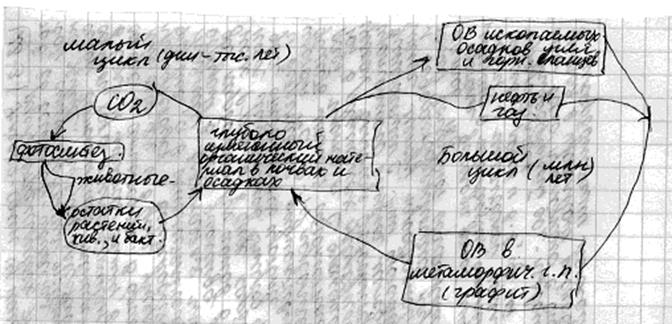 малый
цикл (дни-тыс. лет)
CO2
фотосинтез.
животные-
остатки
растений,
жив., и бакт.
глубоко
измененный
органический мате-
риал в почвах и
осадках
ОВ ископаемых
осадков угля
и горн. сланцев
нефть и
газ.
Большой
цикл (млн
лет)
ОВ в
метаморфич. г.п.
(графит)